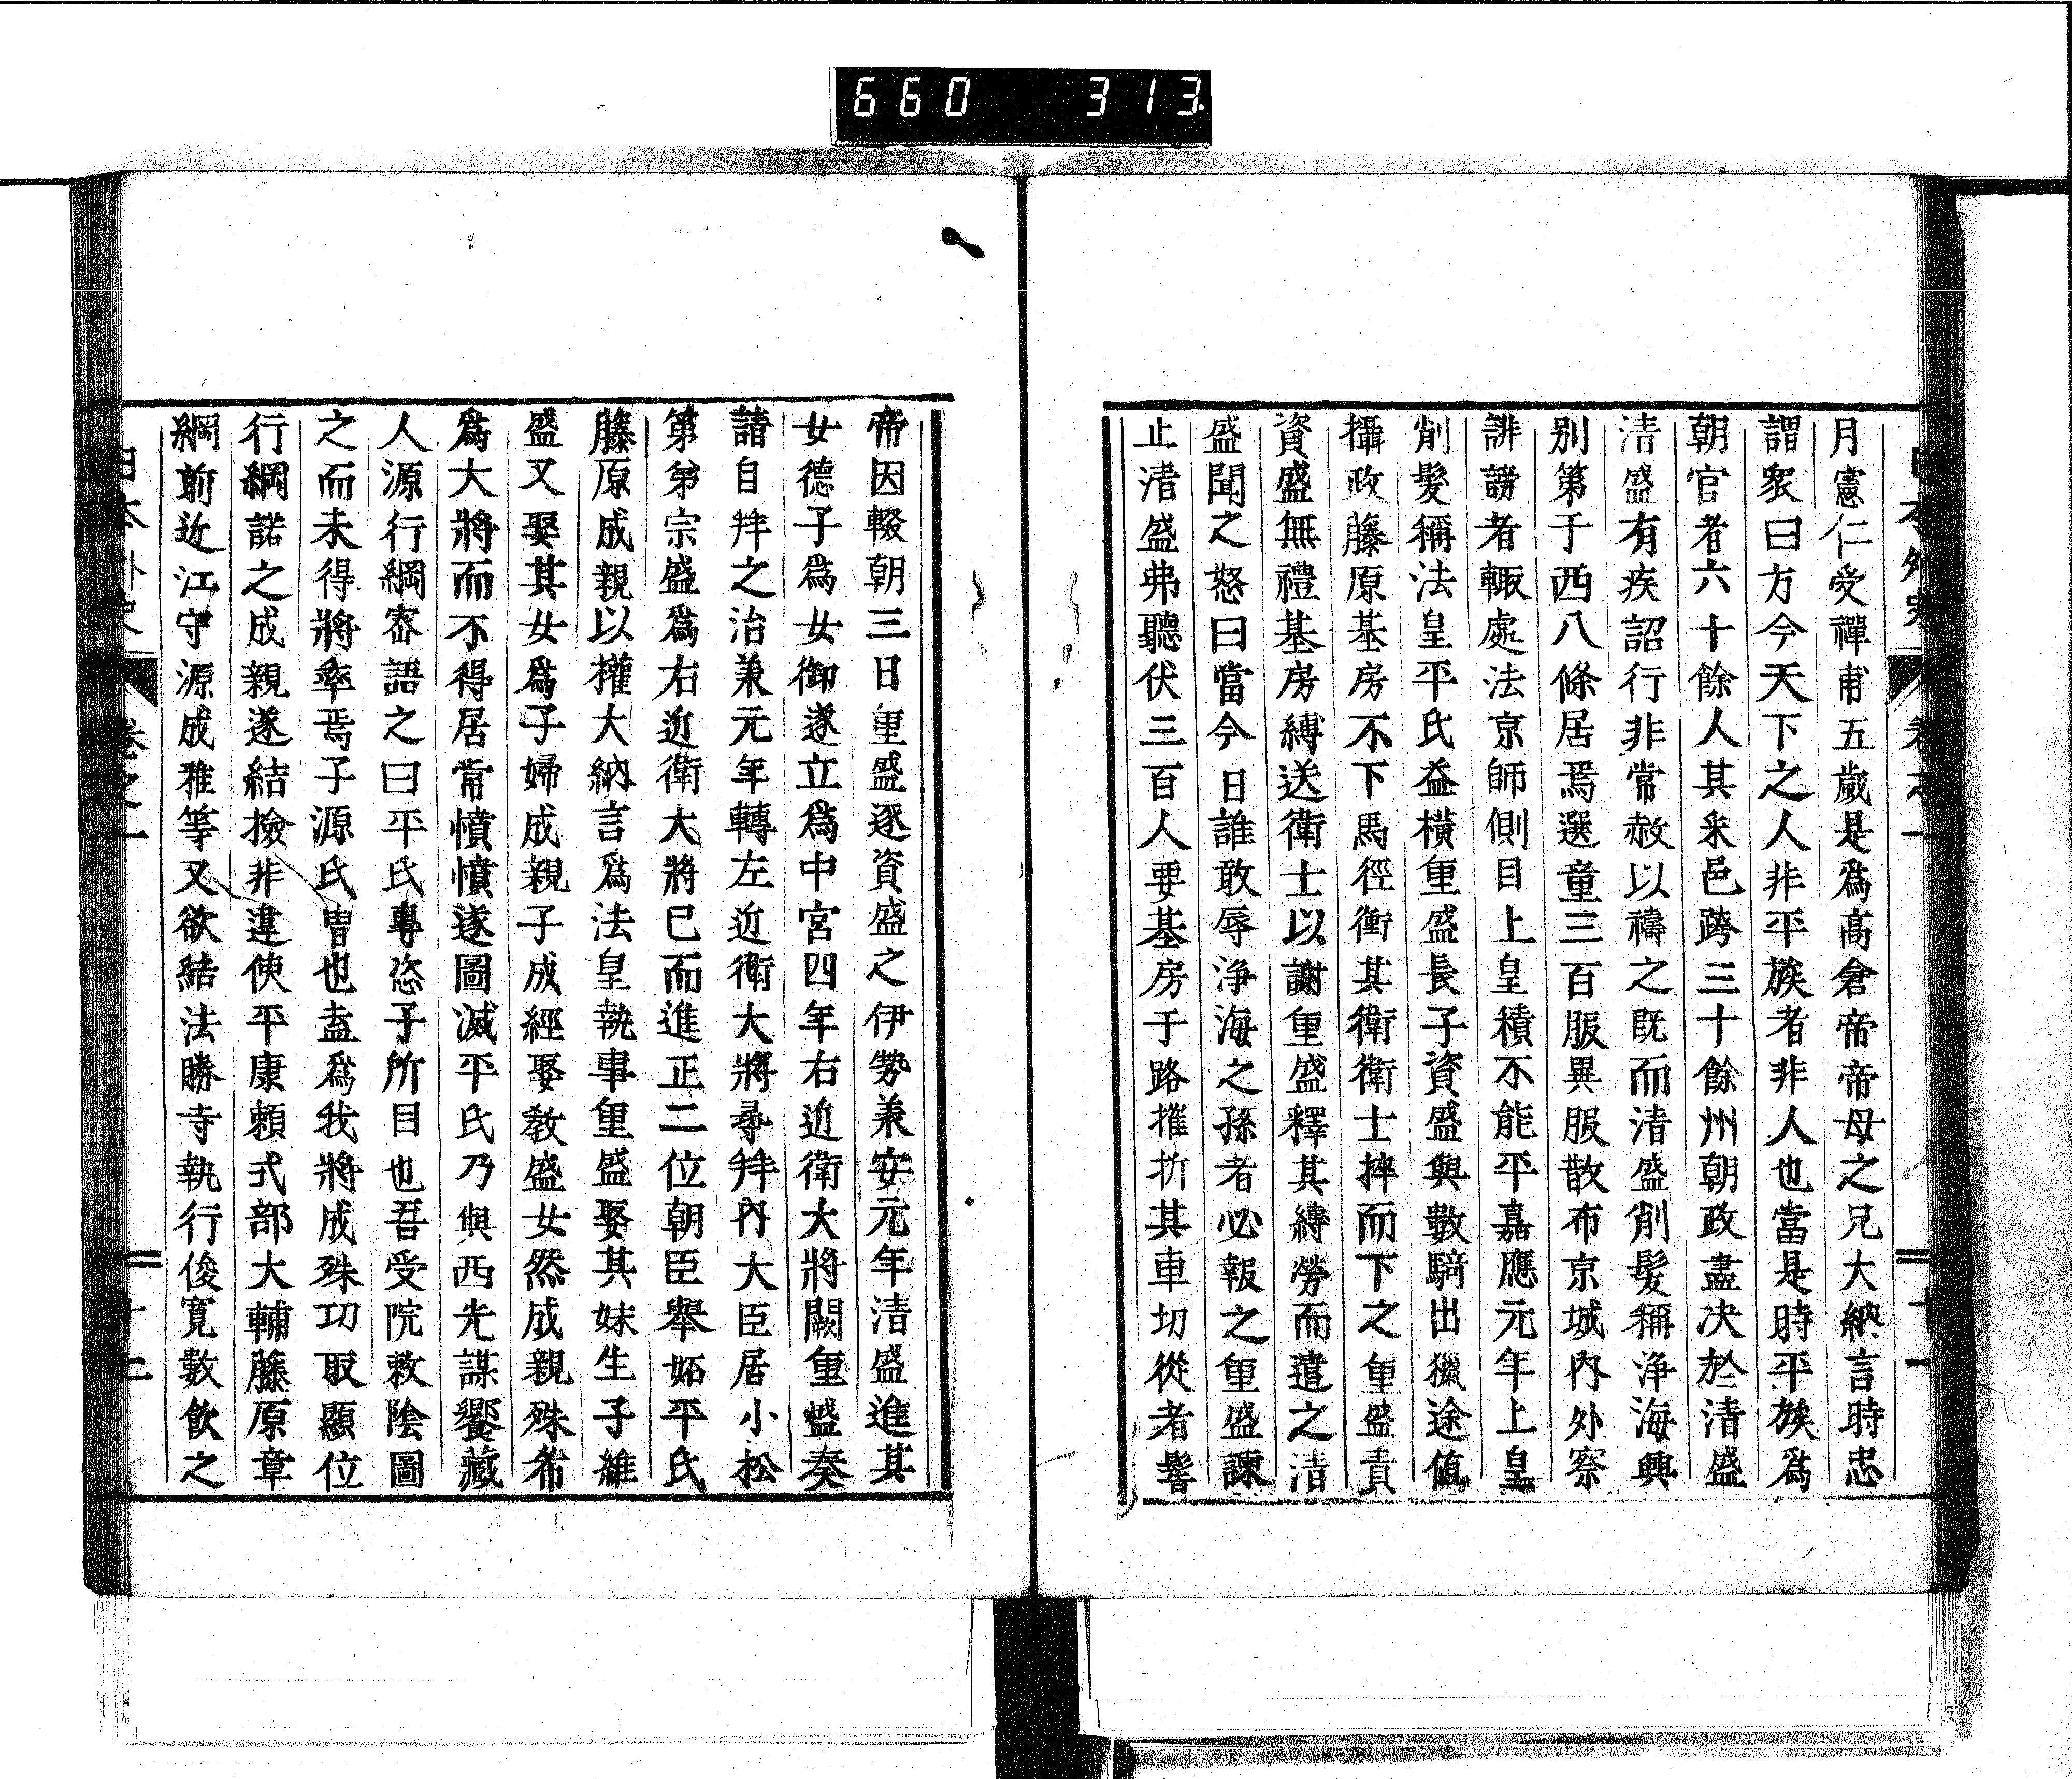 660 313
月憲仁受禪甫五歲是爲髙倉帝帝母之兄大納言時忠
謂衆曰方今天下之人非平族者非人也當是時平族爲
朝官者六十餘人其釆邑跨三十餘州朝政盡决於淸盛
淸盛有疾詔行非常赦以禱之既而淸盛削髮稱浄海興
別第于西八條居焉選童三百服異服散布京城內外察
誹謗者輙處法京師側目上皇積不能平嘉應元年上皇
削髮稱法皇平氏益橫重盛長子資盛與數騎出獵途値
攝政藤原基房不下馬徑衝其衛衛士捽而下之重盛責
資盛無禮基房縛送衛士以謝重盛釋其縛勞而遣之淸
盛聞之怒曰當今日誰敢辱浄海之孫者必報之重盛諫
止淸盛弗聽伏三百人要基房于路摧折其車切從者髻
帝因輟朝三日重盛逐資盛之伊勢兼安元年淸盛進其
女德子爲女御遂立爲中宮四年右近衛大將闕重盛奏
請自拜之治兼元年轉左近衛大將尋拜內大臣居小松
第弟宗盛爲右近衛大將已而進正二位朝臣舉妬平氏
藤原成親以權大納言爲法皇執事重盛娶其妹生子維
盛又娶其女爲子婦成親子成經娶教盛女然成親殊希
爲大將而不得居常憤憤遂圖滅平氏乃與西光謀饗藏
人源行綱密語之曰平氏專恣子所目也吾受院敕陰圖
之而未得將率焉子源氏冑也盍爲我將成殊功取顯位
行綱諾之成親遂結撿非違使平康賴式部大輔藤原章
綱前近江守源成雅等又欲結法勝寺執行俊寬數飮之
日本外史 卷之一 十二